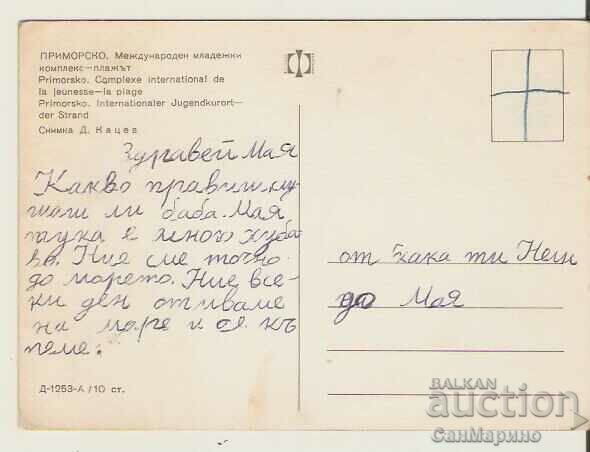 ПРИМОРСКО. Международен младежки
комплекс—плажът
Primorsko. Complexe international de
la jeunesse—la plage
Primorsko. Internationaler Jugendkurort—
der Strand
Снимка Д. Кацев
Здравей Мая
Какво правиш, слу
шаш ли баба. Мая
тука е много хуба
во. Ние сме точно
до морето. Ние все-
ки ден отиваме
на море и се къ
пеме.
Д-1253-А/10 ст.
от кака ти Нели
до Мая
BALKAN
auction
СанМарино